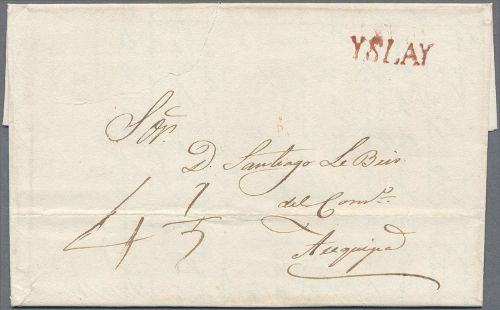 YSLAY
Sõr.
D. Santiago Le Bris
del Comº.
Arequipa